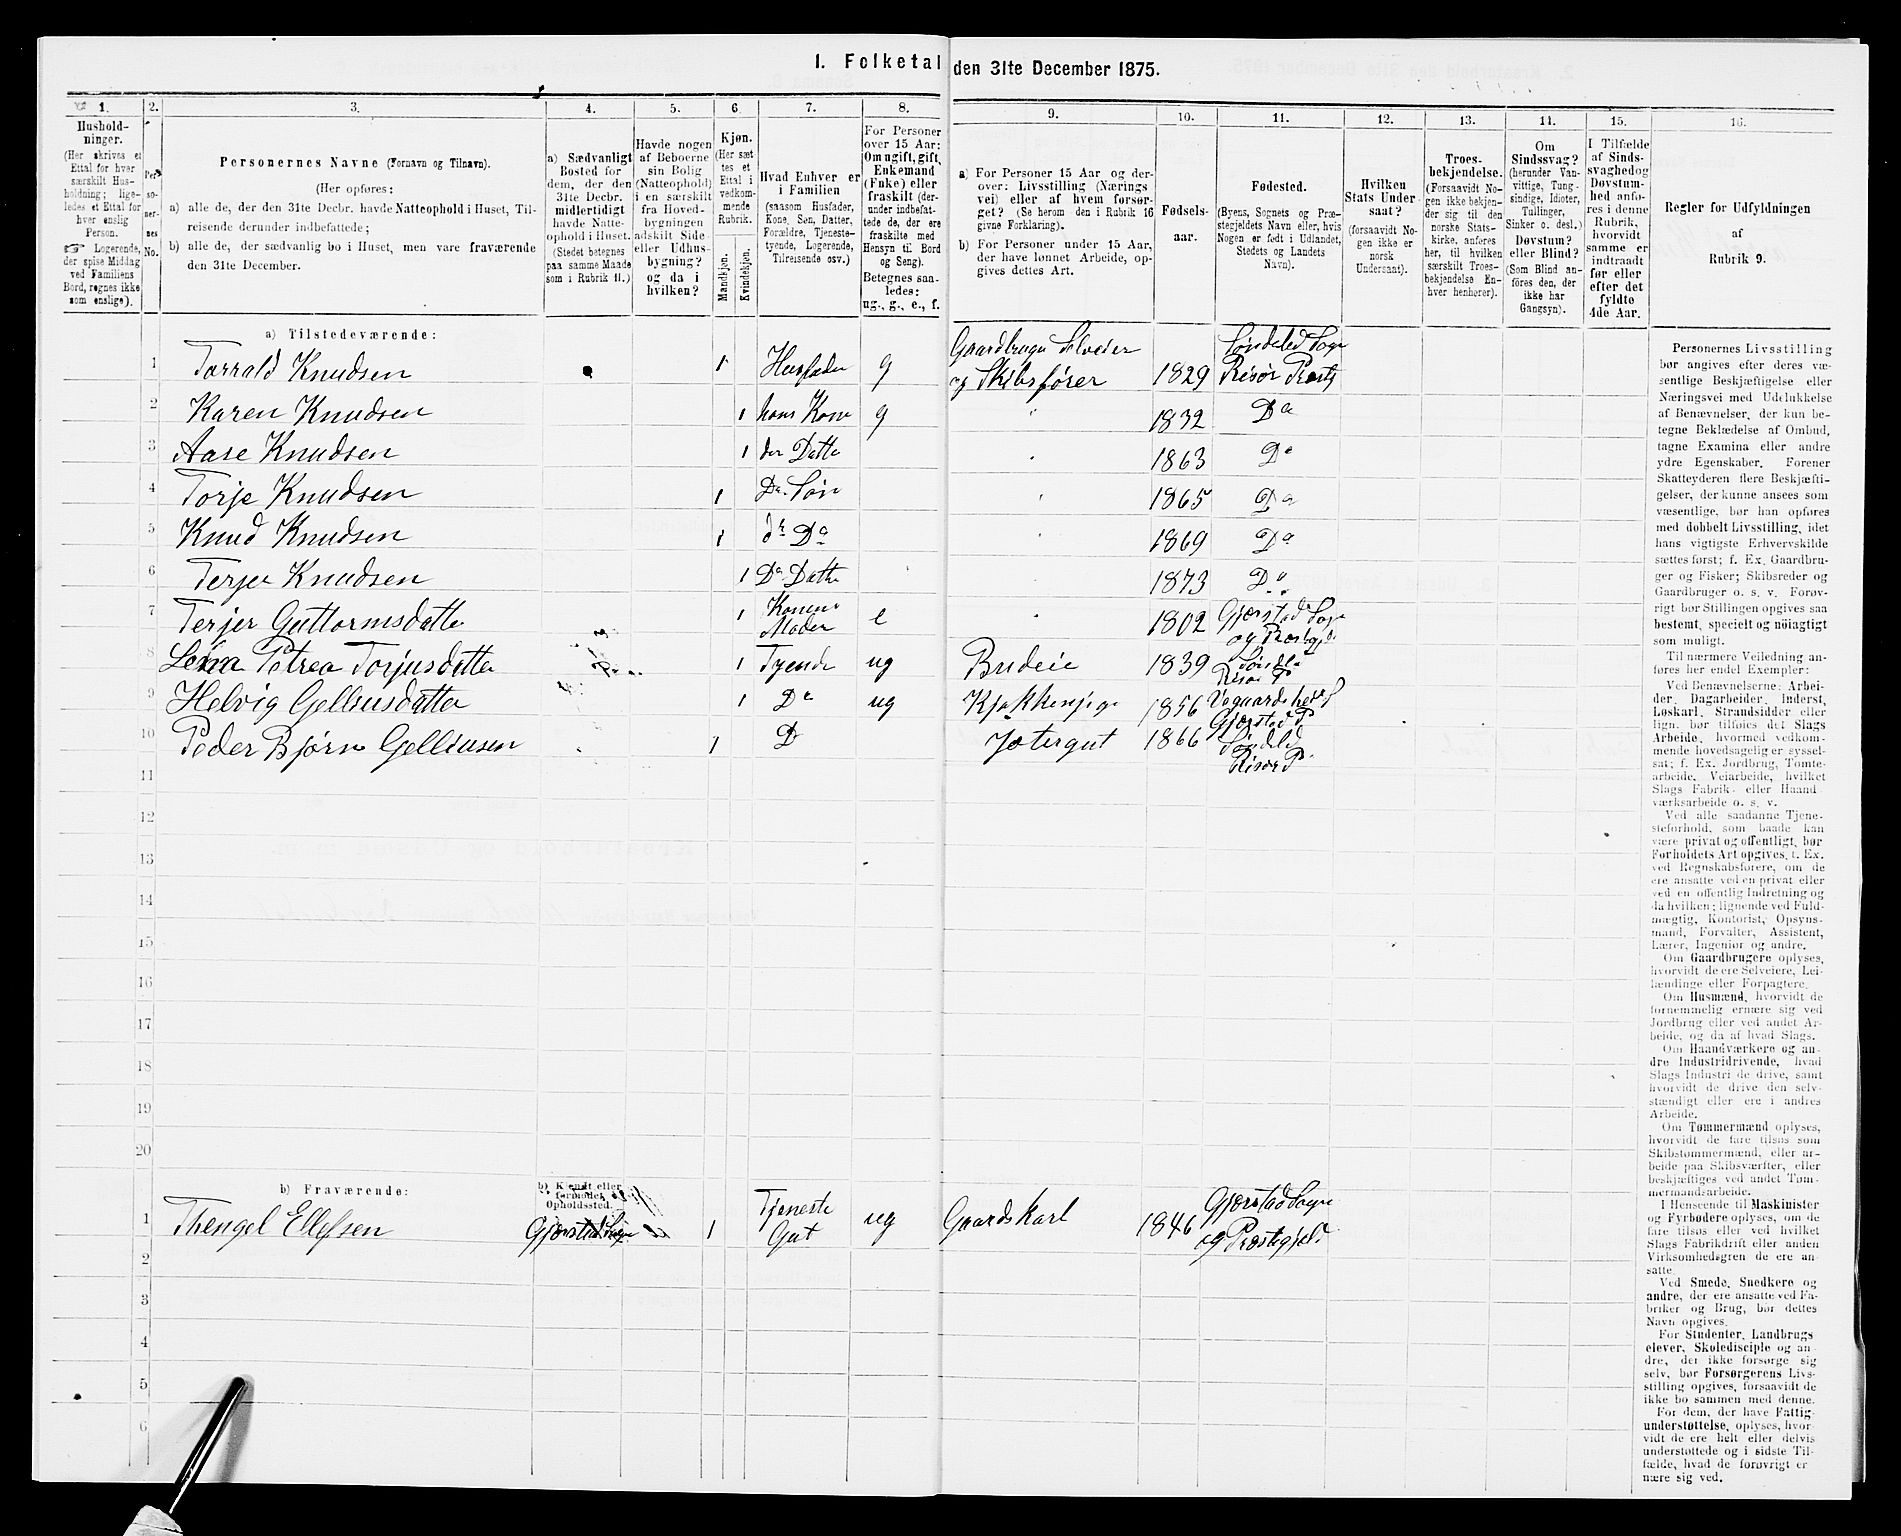 I. Folketal den 31te December 1875.
1. 2. 3. 4. 5. 6. 7. 8. 9. 10. 11. 12. 13. 14. 15. 16.
Hushold-
ninger.
(Her skrives et
Ettal for hver
særskilt Hus-
holdning; lige-
ledes et Ettal for
hver enslig
Person.
☞ Logerende,
der spise Middag
ved Familiens
Bord, regnes ikke
som enslige).
Per-
so-
ner-
nes
No.
Personernes Navne (Fornavn og Tilnavn).
(Her opføres:
a) alle de, der den 31te Decbr. havde Natteophold i Huset, Til-
reisende derunder indbefattede;
b) alle de, der sædvanlig bo i Huset, men vare fraværende
den 31te December.
a) Sædvanligt
Bosted for
dem, der den
31te Decbr.
midlertidigt
havde Natte-
ophold i Huset.
(Stedet betegnes
paa samme Maade
som i Rubrik 11.)
Havde nogen
af Beboerne
sin Bolig
(Natteophold)
i en særskilt
fra Hoved-
bygningen
adskilt Side-
eller Udhus-
bygning?
og da i
hvilken?
Kjøn.
(Her sæt
tes et
Ettal i
vedkom-
mende
Rubrik.
Mandkjøn.
Kvindekjøn.
Hvad Enhver er
i Familien
(saasom Husfader,
Kone, Søn, Datter,
Forældre, Tjeneste-
tyende, Logerende,
Tilreisende osv.)
For Personer
over 15 Aar:
Om ugift, gift,
Enkemand
(Enke) eller
fraskilt (der-
under indbefat-
tede de, der ere
fraskilte med
Hensyn til Bord
og Seng).
Betegnes saa-
ledes:
ug., g., e., f.
a) For Personer 15 Aar og der-
over: Livsstilling (Nærings
vei) eller af hvem forsør-
get? (Se herom den i Rubrik 16
givne Forklaring).
b) For Personer under 15 Aar,
der have lønnet Arbeide, op-
gives dettes Art.
Fødsels-
aar.
Fødested.
(Byens, Sognets og Præ-
stegjeldets Navn eller, hvis
Nogen er født i Udlandet,
Stedets og Landets
Navn).
Hvilken
Stats Under
saat?
(forsaavidt No-
gen ikke er
norsk
Undersaat).
Troes-
bekjendelse.
(Forsaavidt No-
gen ikke bekjen-
der sig til den
norske Stats-
kirke, anføres
her, til hvilken
særskilt Troes-
bekjendelse En-
hver henhører).
Om
Sindssvag?
(herunder Van-
vittige, Tung-
sindige, Idioter,
Tullinger,
Sinker o. desl.)
Døvstum?
eller Blind?
(Som Blind an-
føres den, der
ikke har
Gangsyn).
I Tilfælde
af Sinds-
svaghed og
Døvstum-
hed anfø-
res i denne
Rubrik,
hvorvidt
samme er
indtraadt
før eller
efter det
fyldte
4de Aar.
Regler for Udfyldningen
af
Rubrik 9.
a) Tilstedeværende:
1 Torrald Knudsen 1 Husfader g Gaardbruger Selveier og Skibsfører 1829 Søndeled Sogn Risør Prestg
2 Karen Knudsen 1 hans Kone g " 1832 Do
3 Aase Knudsen 1 der Datte " 1863 Do
4 Torje Knudsen 1 Do Søn " 1865 Do
5 Knud Knudsen 1 dr Do " 1869 Do
6 Terjer Knudsen 1 Do Datte " 1873 Do
7 Terjer Guttormsdatte 1 Konens Moder e " 1802 Gjerstad Sogn og Prestgjd
8 Lena Petrea Torjusdatter 1 Tyende ug Budeie 1839 Søndled Risør P
9 Helvig Gelliusdatter 1 Do ug Kjøkkenpige 1856 Vegaardsheiens Gjerstad P
10 Peder Bjørn Gelliusen 1 D Jætergut 1866 Søndeled Risør P
11
12
13
14
15
16
17
18
19
20
b) Fraværende:
b) Kjendt eller
formodet
Opholdssted.
1 Thengel Ellefsen Gjerstad Sogn 1 Tjeneste Gut ug Gaardskarl 1846 Gjerstad Sogn og Prestegjeld
2
3
4
5
6
Personernes Livsstilling
bør angives efter deres væ-
sentlige Beskjæftigelse eller
Næringsvei med Udelukkelse
af Benævnelser, der kun be-
tegne Beklædelse af Ombud,
tagne Examina eller andre
ydre Egenskaber. Forener
Skatteyderen flere Beskjæfti-
gelser, der kunne ansees som
væsentlige, bør han opføres
med dobbelt Livsstilling, idet
hans vigtigste Erhvervskilde
sættes først; f. Ex. Gaardbru-
ger og Fisker; Skibsreder og
Gaardbruger o. s. v. Forøv-
rigt bør Stillingen opgives saa
bestemt, specielt og nøiagtigt
som muligt.
Til nærmere Veiledning an-
føres her endel Exempler:
Ved Benævnelserne: Arbei-
der, Dagarbeider, Inderst,
Løskarl, Strandsidder eller
lign. bør tilføies det Slags
Arbeide, hvormed vedkom-
mende hovedsagelig er syssel-
sat; f. Ex. Jordbrug, Tomte-
arbeide, Veiarbeide, hvilket
Slags Fabrik- eller Haand
værksarbeide o. s. v.
Ved alle saadanne Tjene-
steforhold, som baade kan
være privat og offentligt, bør
Forholdets Art opgives, t. Ex.
ved Regnskabsførere, om de
ere ansatte ved en privat eller
ved en offentlig Indretning og
da hvilken; lignende ved Fuld-
mægtig, Kontorist, Opsyns-
mand, Forvalter, Assistent,
Lærer, Ingeniør og andre.
Om Gaardbrugere oplyses,
hvorvidt de ere Selveiere, Lei-
lændinge eller Forpagtere.
Om Husmænd, hvorvidt de
fornemmelig ernære sig ved
Jordbrug eller ved andet Ar-
beide, og da af hvad Slags.
Om Haandværkere og an-
dre Industridrivende, hvad
Slags Industri de drive, samt
hvorvidt de drive den selv-
stændigt eller ere i andres
Arbeide.
Om Tømmermænd oplyses,
hvorvidt de fare tilsøs som
Skibstømmermænd, eller ar-
beide paa Skibsværfter, eller
beskjæftiges ved andet Tøm-
mermandsarbeide.
I Henseende til Maskinister
og Fyrbødere oplyses, om de
fare tilsøs eller ved hvilket
Slags Fabrikdrift eller anden
Virksomhedsgren de ere an-
satte.
Ved Smede, Snedkere og
andre, der ere ansatte ved Fa-
briker og Brug, bør dettes
Navn opgives.
For Studenter, Landbrugs
elever, Skoledisciple og an-
dre, der ikke forsørge sig
selv, bør Forsørgerens Livs-
stilling opgives, forsaavidt de
ikke bo sammen med denne.
For dem, der have Fattig-
understøttelse, oplyses, hvor-
vidt de ere helt eller delvis
understøttede og i sidste Til-
fælde, hvad de forøvrigt er
nære sig ved.